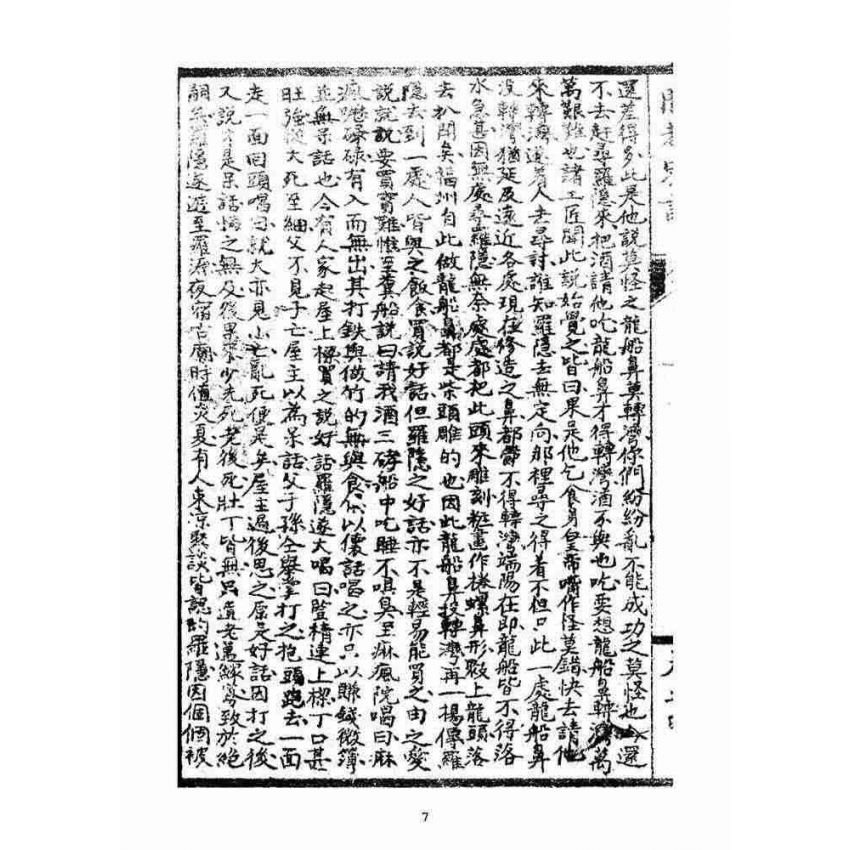 還差得多此是他說莫怪之龍船鼻莫轉灣你們紛紛亂不能成功之莫怪也還
不去赶尋羅隱來把酒請他吃龍船鼻才得轉灣酒不與也吃要想龍船鼻轉灣萬
萬艱難也諸工匠聞此說始覺之皆曰果是他乞食身皇帝嘴作怪莫錯快去請他
來轉灣遂着人去尋討誰知羅隱去無定向那裡尋之得着不但只此一處龍船鼻
沒轉灣猶延及遠近各處現在修造之鼻都不得轉灣端陽在即龍船皆不得落
水急甚因無處尋羅隱無奈處處都把此頭來雕刻粧畫作捲螺鼻形上龍頭落
去扒開矣福州自此做龍船鼻都是柴頭雕的也因此龍船鼻沒轉灣再一楊傳羅
隱去到一處人皆與之飯食買說好話但羅隱之好話亦不是輕易能買之由之愛
說說說要買實難惟至糞船說曰請我酒三船中吃睡不嗅臭至麻瘋院唱曰麻
瘋碌碌有入而無出其打鉄與做竹的無與食伊以懷話唱之亦只以賺錢微簿
並無呆話也今有人家起屋上樑買之說好話羅隱遂大唱曰登精連上樑丁口甚
旺強後大死至細父不見子亡屋主以為呆話父子孫仝舉掌打之抱頭跑去一面
走一面回頭唱曰就大亦見小亡亂死便是矣屋主過後思之原是好話因打之後
又說才是呆話悔之無及後果不少先死老後死壯丁皆無只遺老邁鰥寡致於絕
嗣矣羅隱遂遊至羅源夜宿古廟時值炎夏有人東涼聚談皆認的羅隱因個個被
7